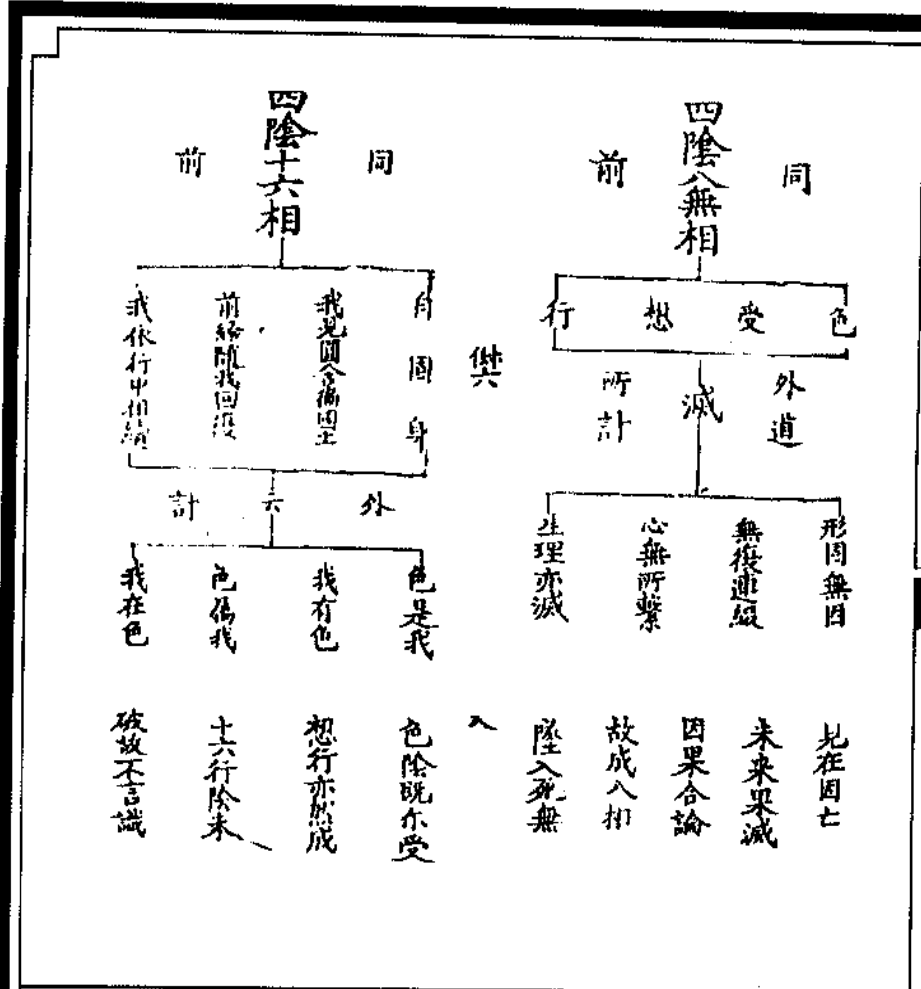 同前
四陰八無相
色受想行
外道所計
滅
形因無因
無復連綴
心無所繫
生理亦滅
見在因亡
未來果滅
因果合論
故成八相
墜入死無
同前
四陰十六相
自固身
我見圓含徧國土
前緣隨我回復
我依行中相續
外六計
色是我
我有色
色屬我
我在色
入
色陰既尔受
想行亦然成
十六行陰未
破故不言識